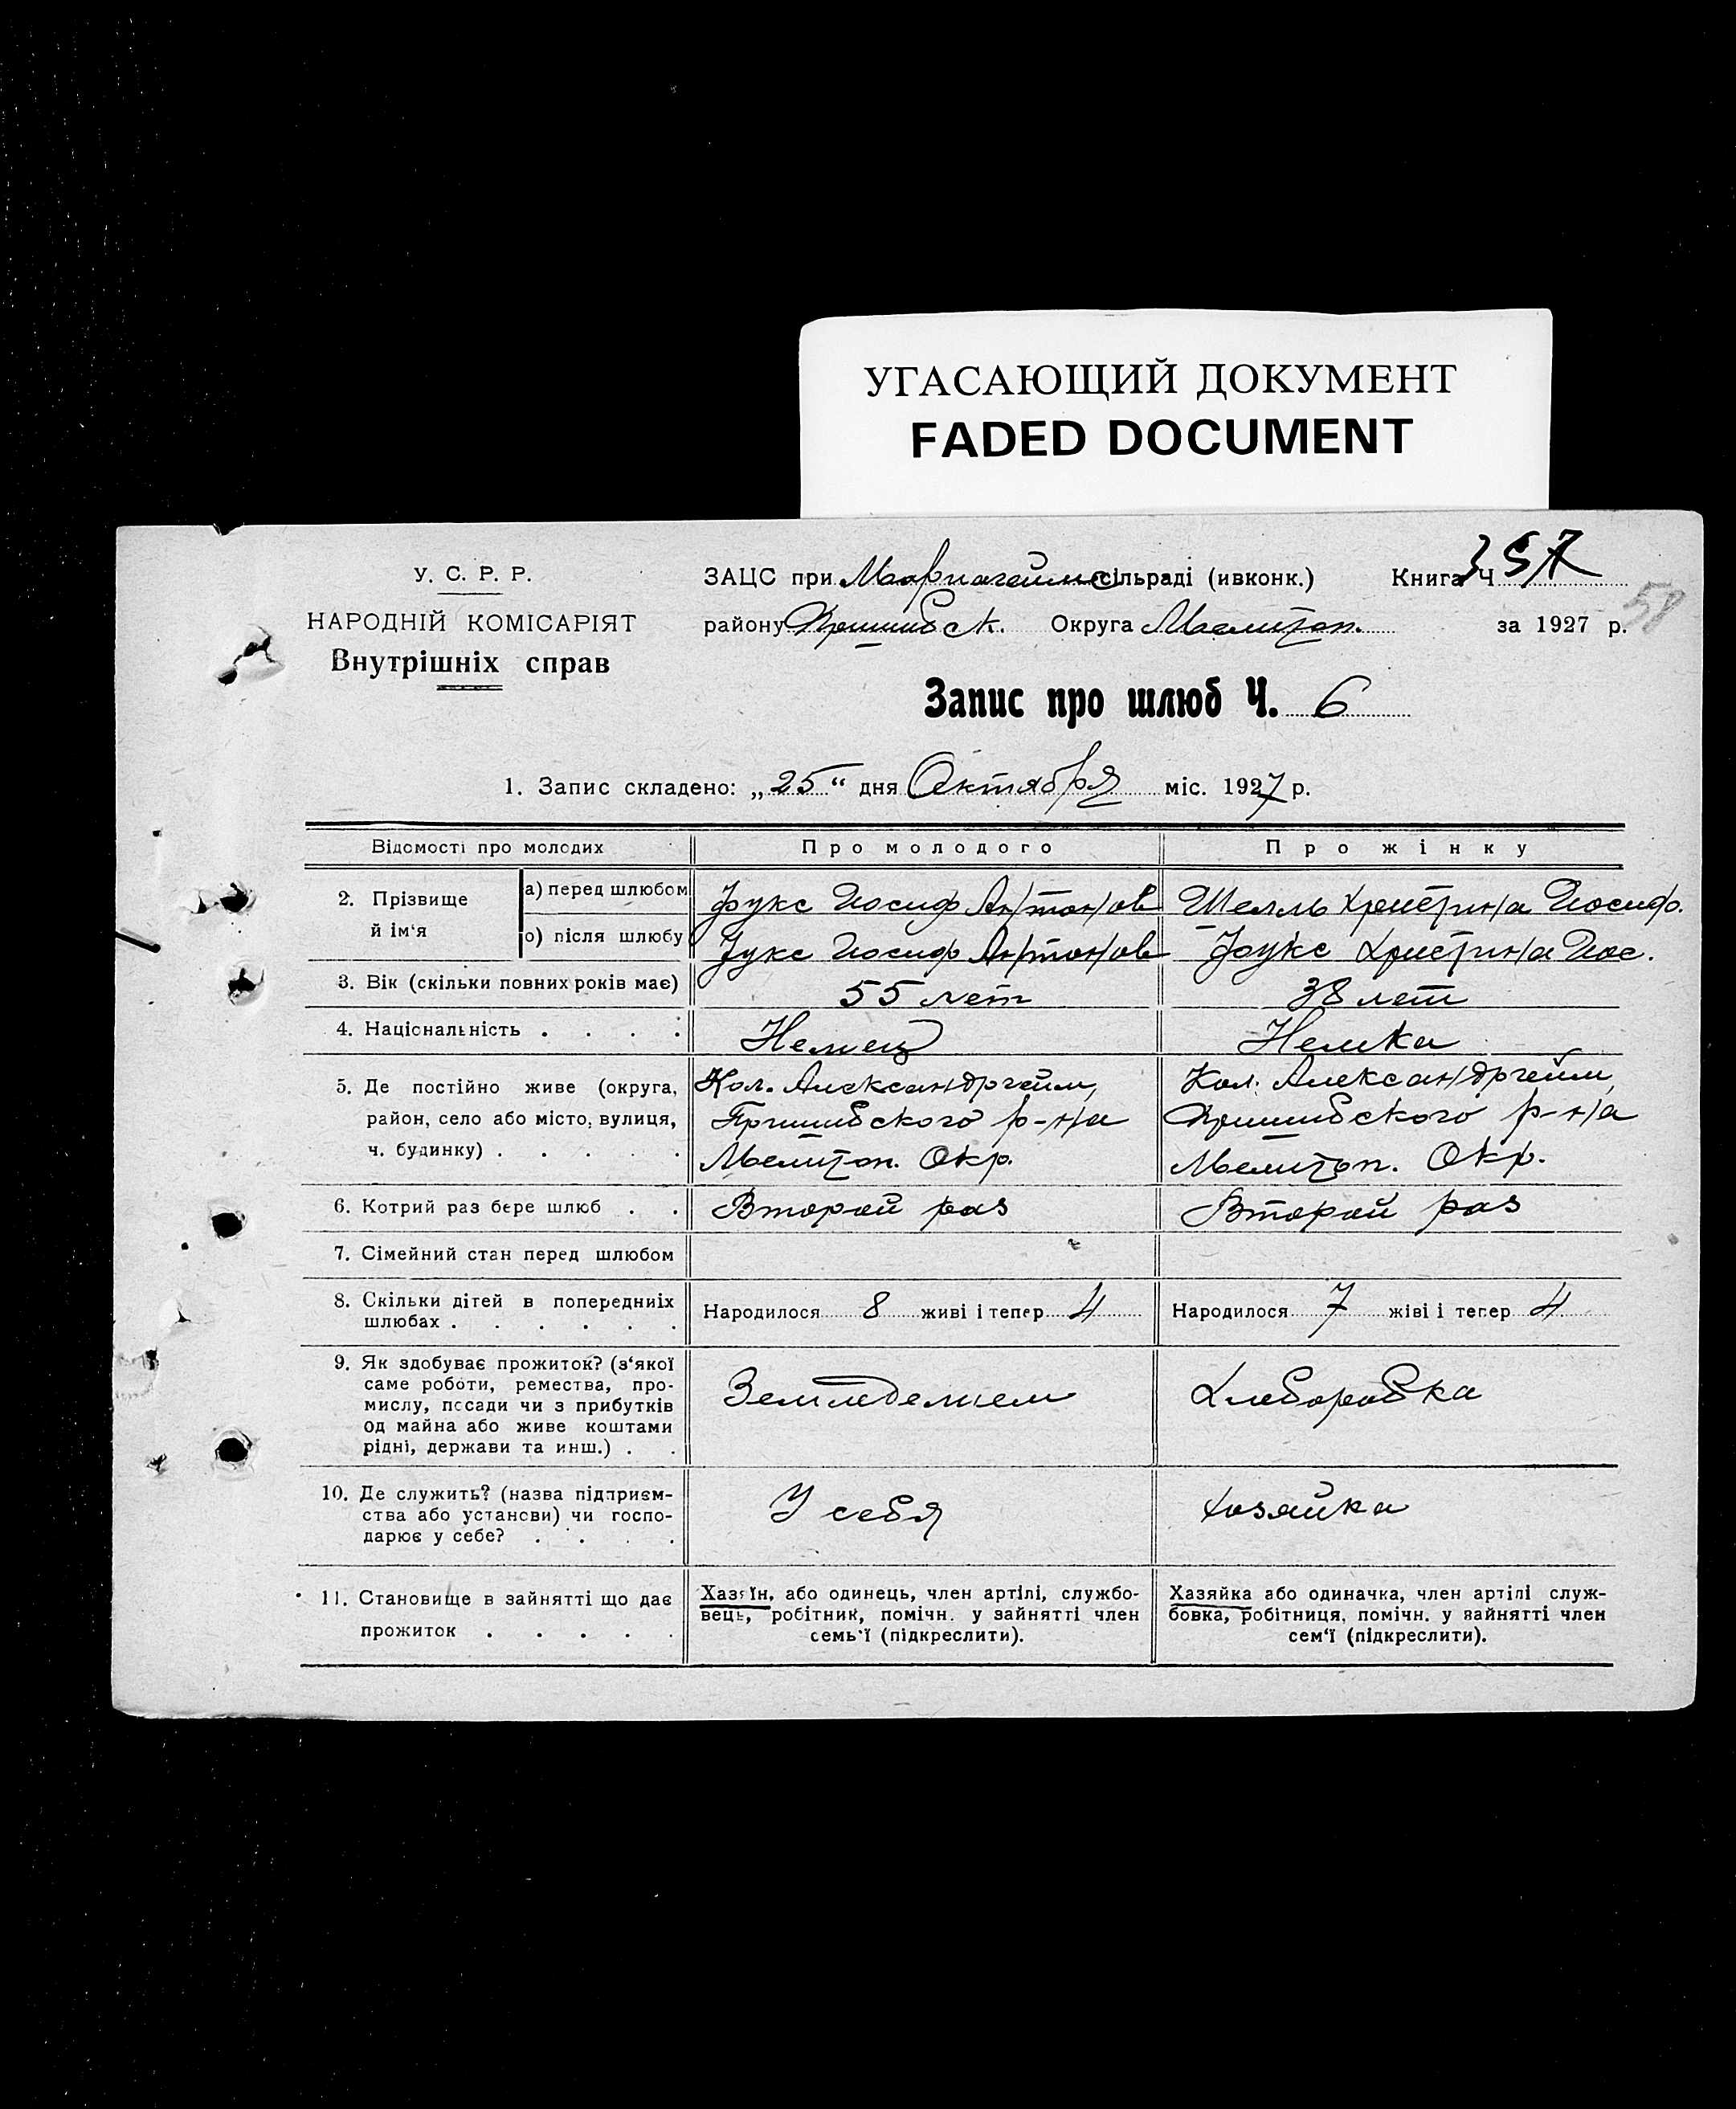 УГАСАЮЩИЙ ДОКУМЕНТ
FADED DOCUMENT
У. С. Р. Р.
НАРОДНІЙ КОМІСАРІЯТ
Внутрішніх справ
ЗАЦС при Мариагеймс сільраді (ивконк.) Книга Ч 357
58
району Пришибск. Округа Мелитоп. за 1927 р.
Запис про шлюб Ч. 6
1. Запис складено: „25“ дня Октября міс. 1927 р.
Відомості про молодих Про молодого Про жінку
2. Прізвище й ім‘я
а) перед шлюбом Фукс Иосиф Антонов Шелль Христина Иосиф.
о) після шлюбу Фукс Иосиф Антонов Фукс Христина Иос.
3. Вік (скільки повних років має) 55 лет 38 лет
4. Національність . . . . Немец Немка
5. Де постійно живе (округа, Кол. Александргейм, Кол. Александргейм,
район, село або місто, вулиця, Пришибского р-на Пришибского р-на
ч. будинку) . . . . . Мелитоп. Окр. Мелитоп. Окр.
6. Котрий раз бере шлюб . . Второй раз Второй раз
7. Сімейний стан перед шлюбом
8. Скільки дітей в попередниіх Народилося 8 живі і тепер 4 Народилося 7 жіві і тепер 4
шлюбах . . . . . .
9. Як здобуває прожиток? (з‘якої
саме роботи, ремества, про- Земледелием Хлеборобка
мислу, посади чи з прибутків
од майна або живе коштами
рідні, держави та инш.) . .
10. Де служить? (назва підприєм-
ства або установи) чи госпо- У себя хозяйка
дарює у себе? . . . .
11. Становище в зайнятті що дає Хазяїн, або одинець, член артілі, службо- Хазяйка або одиначка, член артілі служ-
прожиток . . . . . вець, робітник, помічн. у зайнятті член бовка, робітниця, помічн. у зайнятті член
семь‘ї (підкреслити). сем‘ї (підкреслити).